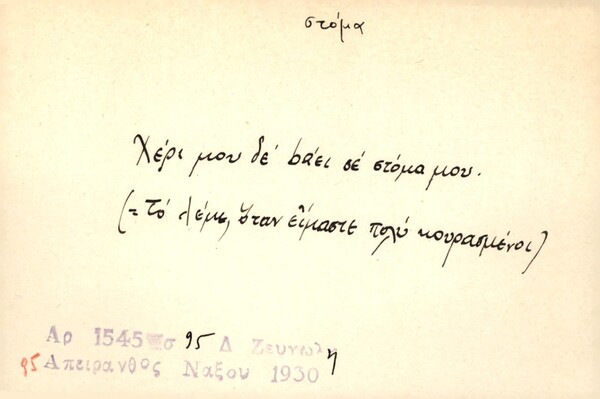 στόμα
Χέρι μου δέ bάει σέ στόμα μου.
(= τό λέμε, ὅταν εἴμαστε πολύ κουρασμένοι)
Αρ 1545 σ 95 Δ Ζευγωλη
95 Απειρανθος Ναξου 1930